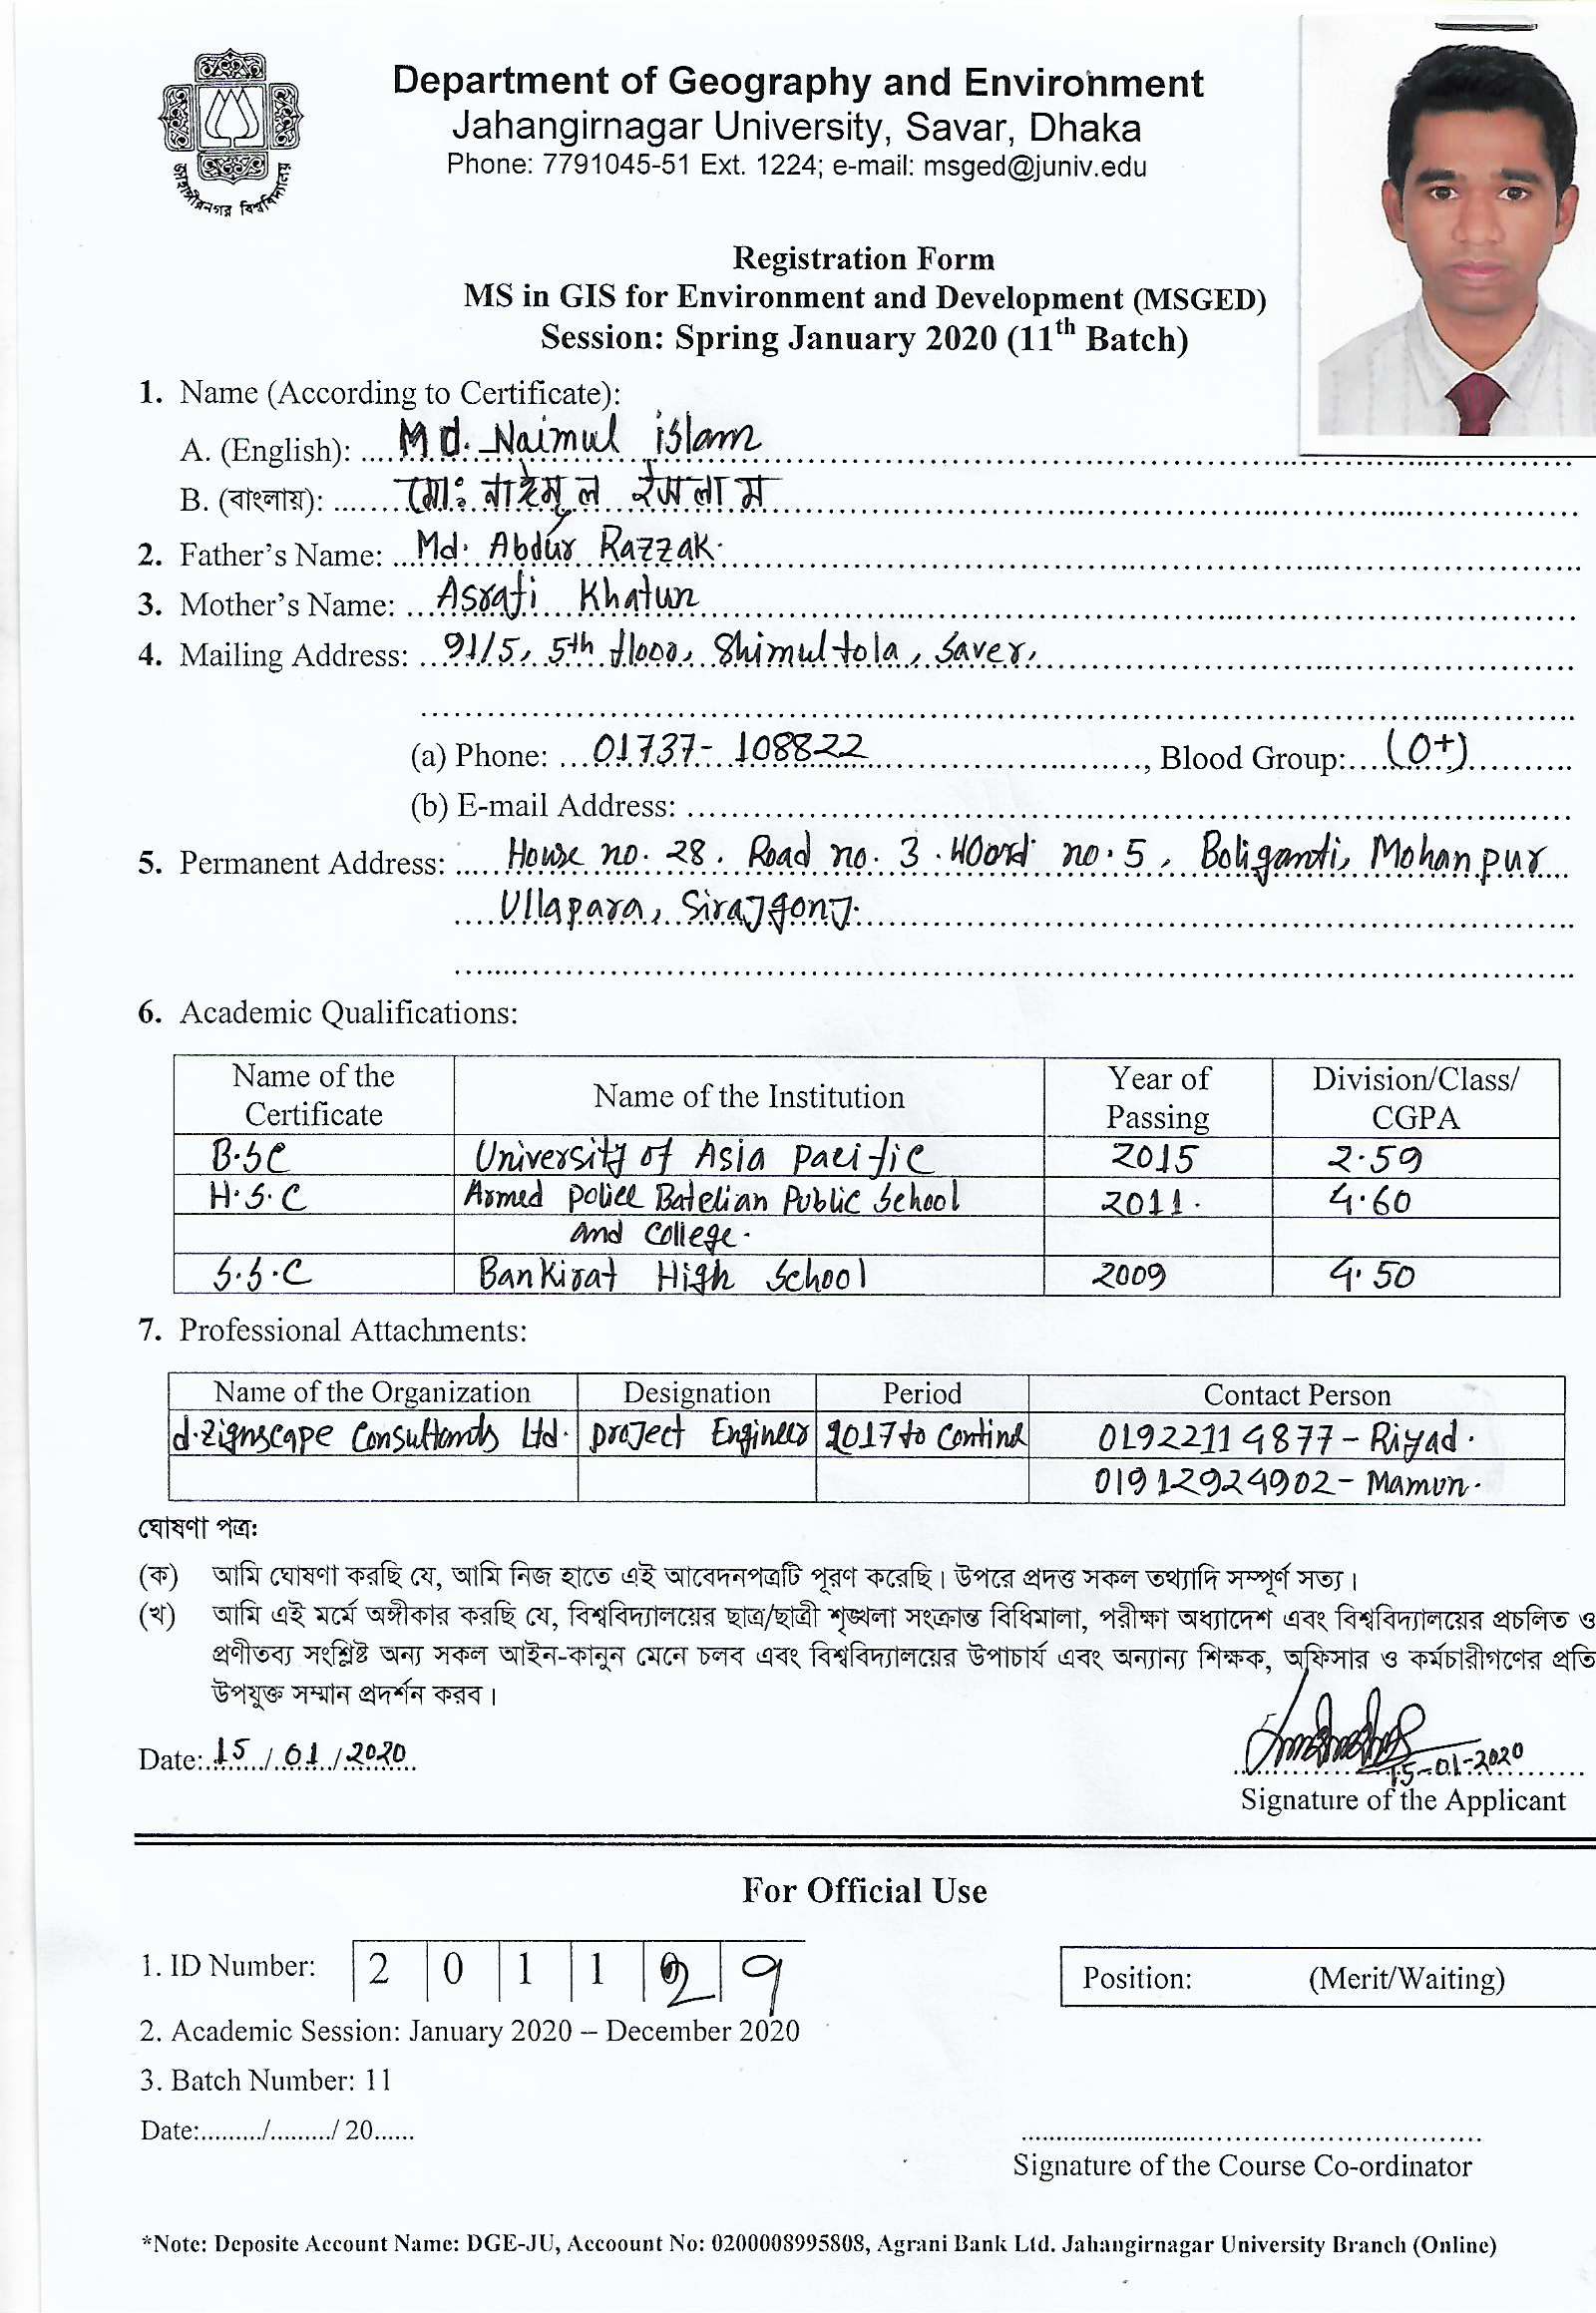 জাহাঙ্গীরনগর বিশ্ববিদ্যালয়
Department of Geography and Environment
Jahangirnagar University, Savar, Dhaka
Phone: 7791045-51 Ext. 1224; e-mail: msged@juniv.edu
Registration Form
MS in GIS for Environment and Development (MSGED)
Session: Spring January 2020 (11th Batch)
1. Name (According to Certificate):
A. (English): Md. Naimul islam
B. (বাংলায়): মোঃ নাইমুল ইসলাম
2. Father's Name: Md. Abdur Razzak.
3. Mother's Name: Asrafi Khatun
4. Mailing Address: 91/5, 5th floor, Shimultola, Saver,
(a) Phone: 01737-108822, Blood Group: (O+)
(b) E-mail Address:
5. Permanent Address: House no. 28. Road no. 3. Woord no. 5, Boliganti, Mohanpur
Ullapara, Sirajgonj.
6. Academic Qualifications:
Name of the Certificate Name of the Institution Year of Passing Division/Class/CGPA
B.SC University of Asia Pacific 2015 2.59
H.S.C Armed police Batelian Public School 2011. 4.60
and college.
S.S.C Bankirat High School 2009 4.50
7. Professional Attachments:
Name of the Organization Designation Period Contact Person
d.zignscape Consultands Ltd. project Engineer 2017 to Continu 01922114877 - Riyad.
01912924902 - Mamun.
ঘোষণা পত্র:
(ক) আমি ঘোষণা করছি যে, আমি নিজ হাতে এই আবেদনপত্রটি পূরণ করেছি। উপরে প্রদত্ত সকল তথ্যাদি সম্পূর্ণ সত্য।
(খ) আমি এই মর্মে অঙ্গীকার করছি যে, বিশ্ববিদ্যালয়ের ছাত্র/ছাত্রী শৃঙ্খলা সংক্রান্ত বিধিমালা, পরীক্ষা অধ্যাদেশ এবং বিশ্ববিদ্যালয়ের প্রচলিত ও
প্রণীতব্য সংশ্লিষ্ট অন্য সকল আইন-কানুন মেনে চলব এবং বিশ্ববিদ্যালয়ের উপাচার্য এবং অন্যান্য শিক্ষক, অফিসার ও কর্মচারীগণের প্রতি
উপযুক্ত সম্মান প্রদর্শন করব।
Date: 15/01/2020
15-01-2020
Signature of the Applicant
For Official Use
1. ID Number: 2 0 1 1 2 9
Position: (Merit/Waiting)
2. Academic Session: January 2020 – December 2020
3. Batch Number: 11
Date:........./........./ 20......
Signature of the Course Co-ordinator
*Note: Deposite Account Name: DGE-JU, Accoount No: 0200008995808, Agrani Bank Ltd. Jahangirnagar University Branch (Online)